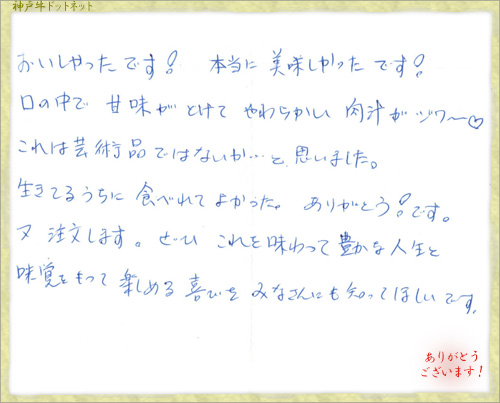 神戸牛ドットネット
おいしかったです! 本当に美味しかったです!
口の中で 甘味がとけて やわらかい 肉汁がジワ〜♡
これは芸術品ではないか…と思いました。
生きてるうちに 食べれてよかった。 ありがとう!です。
又 注文します。 ぜひ これを味わって豊かな人生と
味覚をもって 楽しめる 喜びを みなさんにも知ってほしいです。
ありがとう
ございます!